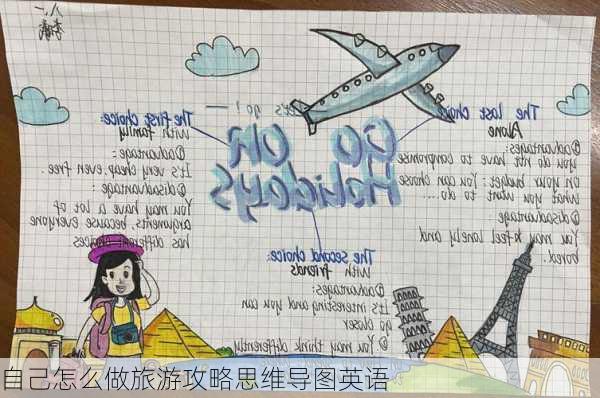 Let's go!
GO ON
Holidays
The first choice:
With family
①advantage:
It's very cheap, even free.
②disadvantage:
You may have a lot of
arguments, because everyone
has different choices
The second choice:
With friends
①advantages:
It's interesting and you can
go closer
②You may think differently
The last choice:
Alone
①advantages:
you do not have to compromise
on your budget; You can choose
what you want to do.....
②disadvantage
You may feel lonely and
bored.
自己怎么做旅游攻略思维导图英语